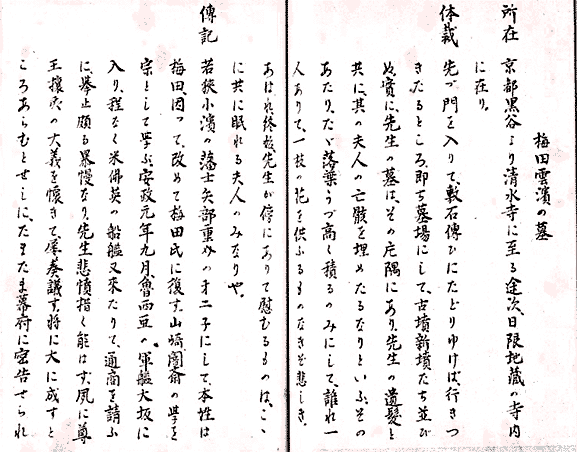 梅田雲濱の墓
所在 京都黒谷より清水寺に至る途次、日限地蔵の寺内
に在り。
体裁 先づ門を入りて、敷石傳ひにたどりゆけば、行きつ
きたるところ、即ち墓場にして、古墳新墳たち並び
ぬ、實に、先生の墓は、その片隅にあり、先生の遺髪と
共に、其の夫人の亡骸を埋めたるなりといふ、その
あたり、たゞ落葉うづ高く積るのみにして、誰れ一
人ありて、一枝の花を供ふるものなきぞ悲しき。
あはれ終枝先生が傍にありて慰むるものは、こゝ
に共に眠れる夫人のみなりや。
傳記 若狭小濱の藩士矢部重の才二子にして、本姓は
梅田、因つて、改めて梅田氏に復す。山崎闇斎の學を
宗として學ぶ、安政元年九月、魯西亜の軍艦大坂に
入り、程なく米佛英の船艦又来たりて、通商を請ふ
に、挙止頗る暴慢なり、先生悲憤措く能はず、夙に尊
王攘夷の大義を懐きて、屡奏議す、将に大に成すと
ころあらむとせしに、たまたま幕府に密告せられ